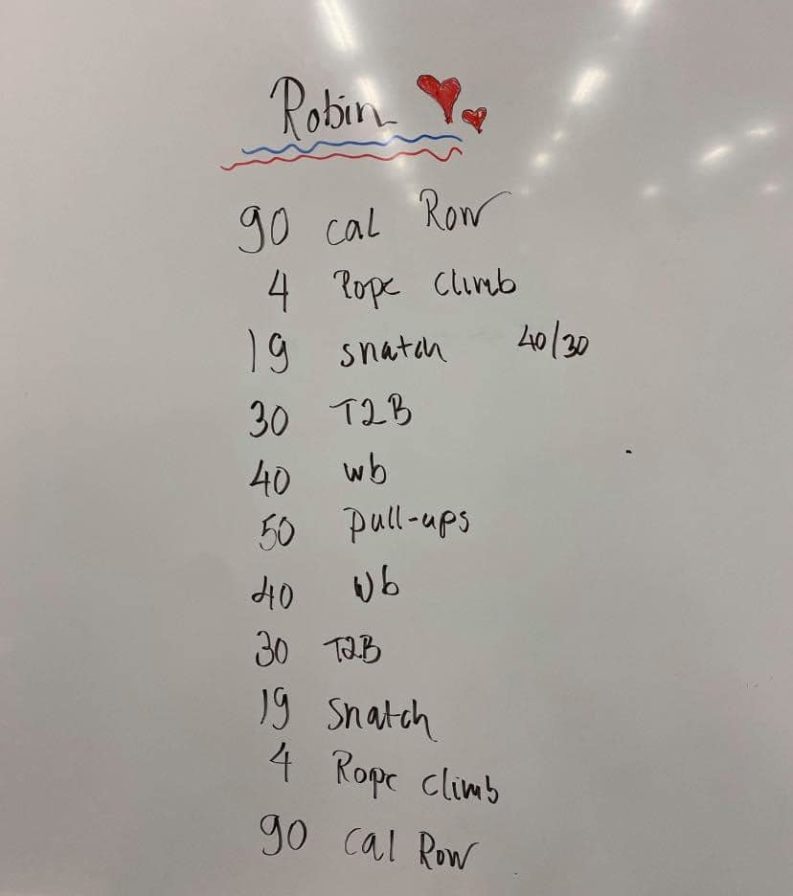 Robin
90 cal Row
4 Rope climb
19 snatch 40/30
30 T2B
40 wb
50 pull-ups
40 wb
30 T2B
19 snatch
4 Rope climb
90 cal Row